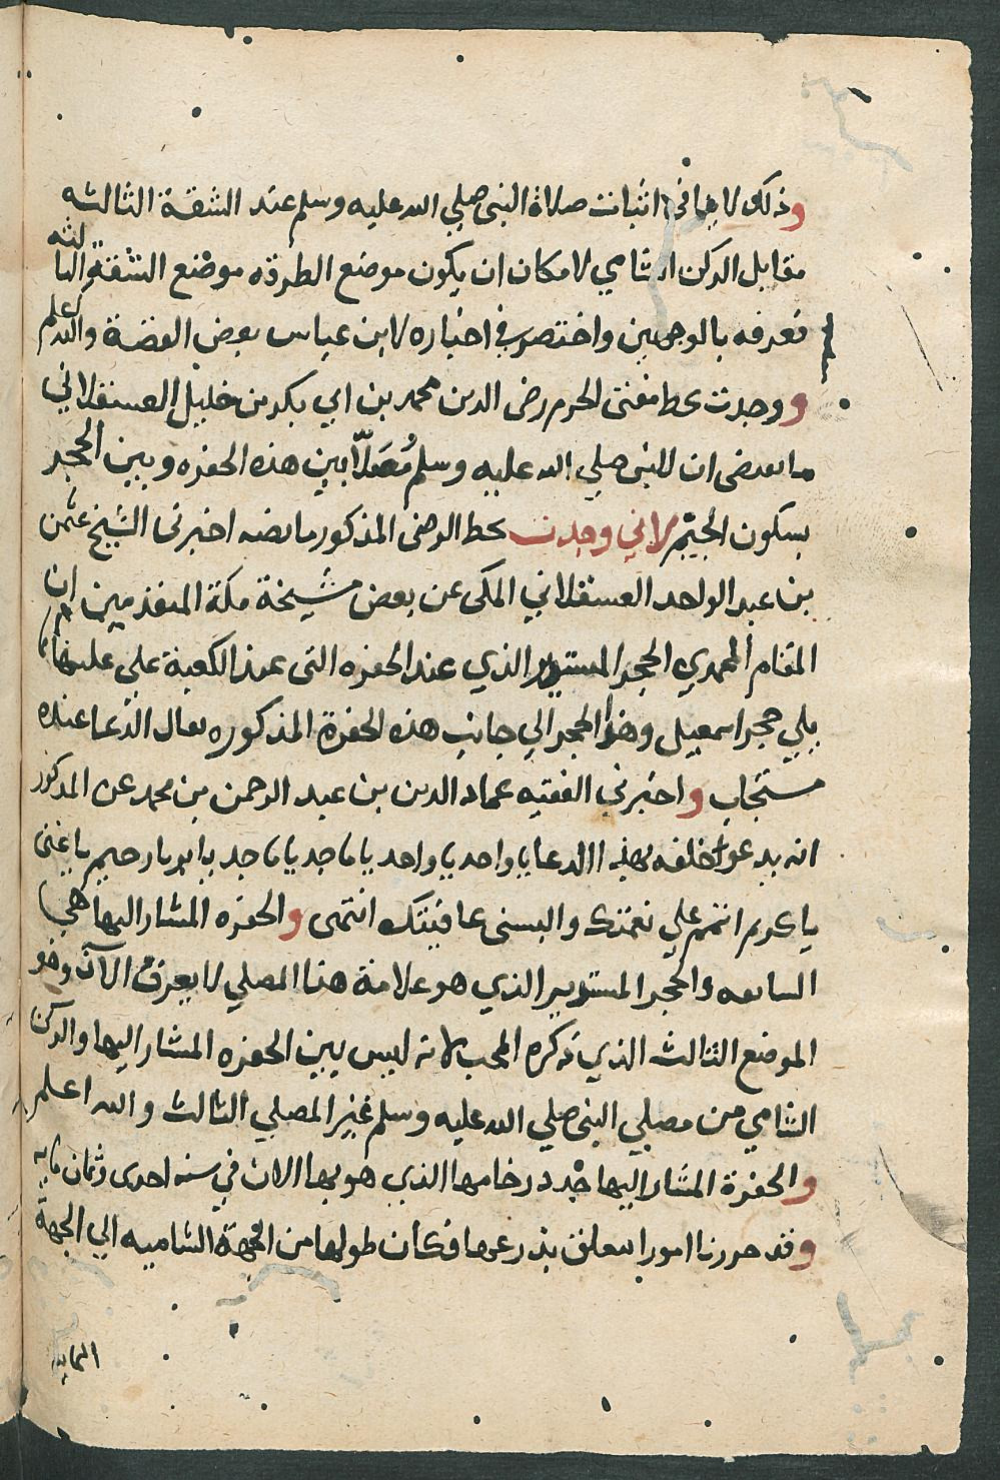 وذلك لا ينافي اثبات صلاة النبي صلي الله عليه وسلم عند الشقة الثالثه
مقابل الركن الشامي لامكان ان يكون موضع الطرقه موضع الشقة الثالثه
فعرفه بالوجهين واختصر في اخباره لابن عباس بعض القصة والله اعلم
ووجدت بخط مفتى الحرم رضى الدين محمد بن ابي بكر بن خليل العسقلاني
ما يقتضى ان للنبي صلي الله عليه وسلم مُصَلّا بين هذه الحفره وبين الحجر
بسكون الجيم لاني وجدت بخط الرضى المذكور ما نصه اخبرنى الشيخ عثمن
بن عبد الواحد العسقلاني المكى عن بعض مشيخة مكة المتقدمين ان
المقام المحمدي الحجر المستدير الذي عند الحفره التى عند الكعبة على
يلي حجر اسمعيل وهذا الحجر الي جانب هذه الحفرة المذكوره يقال الدعا عنده
مستجاب واخبرني الفقيه عماد الدين بن عبد الرحمن بن محمد عن المذكور
انه يدعوا خلفه بهذه الدعا يا واحد يا واحد يا ماجد يا ماجد يا بر يا رحيم يا غنى
يا كريم اتمم علي نعمتك والبسنى عافيتك انتهى والحفره المشار اليها هي
السابقه والحجر المستدير الذي هو علامة هذا المصلي لا يعرف الآن وهو
الموضع الثالث الذي ذكره المحب لانه ليس بين الحفره المشار اليها والركن
الشامي من مصلي النبي صلي الله عليه وسلم غير المصلي الثالث والله اعلم
والحفرة المشار اليها جدد رخامها الذي هو بها الان في سنه احدى وثمان مايه
وقد حررنا امورا تتعلق بذرعها فكان طولها من الجهة الشاميه الي الجهة
اليمانيه